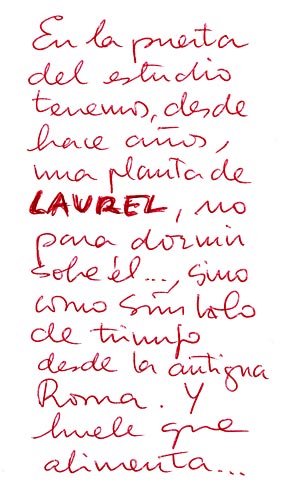 En la puerta
del estudio
tenemos, desde
hace años,
una planta de
LAUREL, no
para dormir
sobre él..., sino
como símbolo
de triunfo
desde la antigua
Roma. Y
huele que
alimenta...